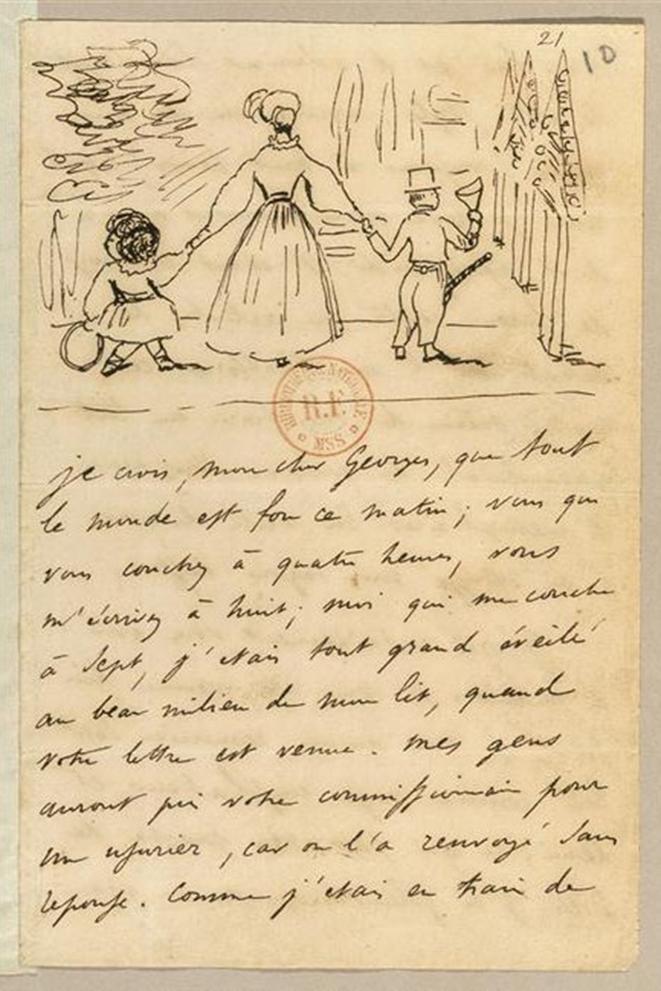 21
10
BIBLIOTHÈQUE NATIONALE
R.F.
MSS
je crois, mon cher Georges, que tout
le monde est fou ce matin ; vous qui
vous couchez à quatre heures, vous
m'écrivez à huit ; moi qui me couche
à sept, j'étais tout grand éveillé
au beau milieu de mon lit, quand
votre lettre est venue. mes gens
auront pris votre commissionnaire pour
un usurier, car on l'a renvoyé sans
réponse. Comme j'étais en train de